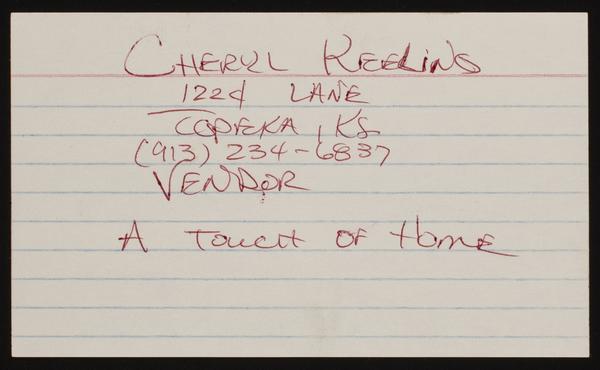 CHERYL KEELING
1224 LANE
TOPEKA, KS
(913) 234-6837
VENDOR
A TOUCH OF HOME